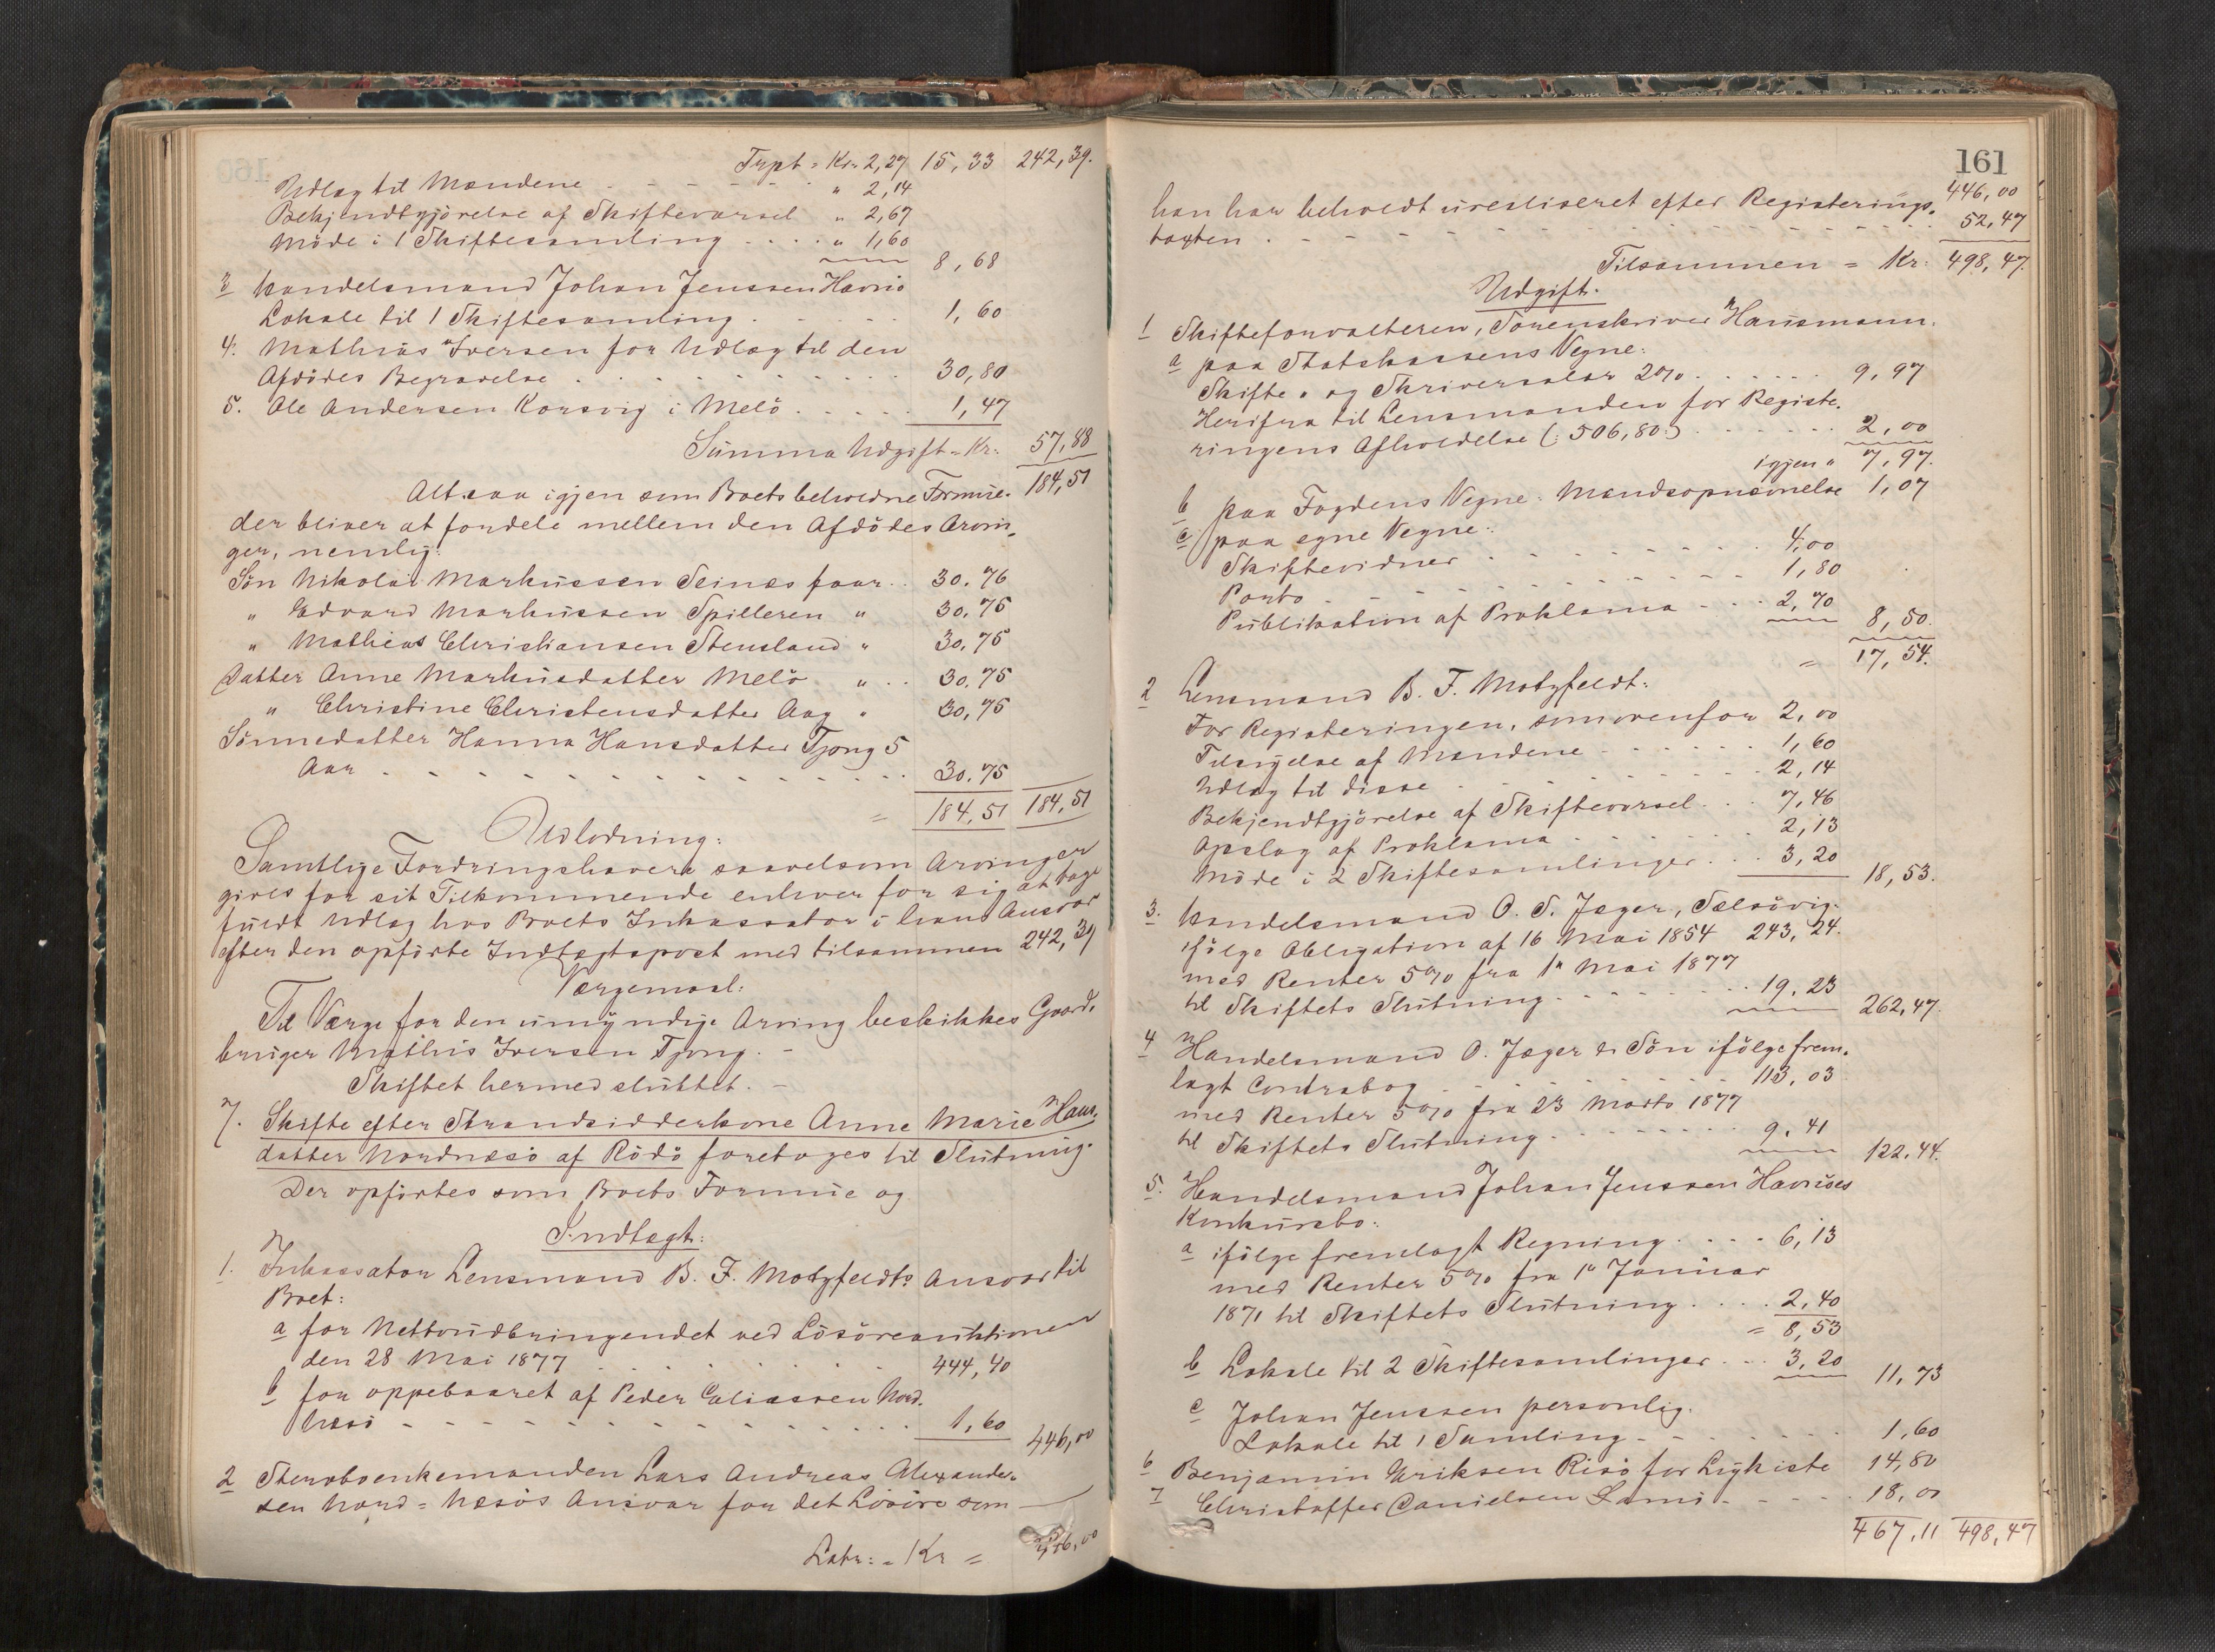 Trpt = Kr. 2,27 15,33 242,39.
Udlæg til Mændene " 2,14
Bekjendtgjörelse af Skiftevarsel " 2,67
Möde i 1 Skiftesamling " 1,60
8,68
3 Handelsmand Johan Jenssen Havnö
Lokale til 1 Skiftesamling 1,60
4. Mathias Iversen for Udlæg til den
Afdödes Begravelse 30,80
5. Ole Andersen Korsvig i Melö 1,47
Summa Udgift = Kr. 57,88
Altsaa igjen som Boets beholdne Formue 184,51
der bliver at fordele mellem den Afdödes Arvin-
ger, nemlig:
Sön Nikolai Markussen Seines faar 30.76
" Edvard Markussen Spilleren " 30,75
" Mathias Christiansen Stensland " 30,75
Datter Anne Markusdatter Melö " 30.75
" Christine Christensdatter Aag " 30,75
Sönnedatter Hanna Hansdatter Tjong 5
Aar 30.75
= 184,51 184,51
Udlodning:
Samtlige Fordringshavere saavelsom Arvinger
gives for sit Tilkommende enhver for sig at tage
fuldt Udlæg hos Boets Inkassator i hans Ansvar
efter den opförte Indtægtspost med tilsammen 242,39
Værgemaal:
Til Værge for den umyndige Arving beskikkes Gaard-
bruger Mathis Iversen Tjong. -
Skiftet hermed sluttet. -
7. Skifte efter Strandsidderkone Anne Marie Hans-
datter Nordnæsö af Rödö foretages til Slutning.
Der opförtes som Boets Formue og
Indtægt:
1. Inkassator Lensmand B. F. Motzfeldts Ansvar til
Boet:
a for Nettoudbringendet ved Lösöreauktionen
den 28 Mai 1877 444,40
b for oppebaaret af Peder Eliassen Nord-
næsö 1,60 446,00
2 Stervboenkemanden Lars Andreas Alexander-
sen Nord=Næsös Ansvar for det Lösöre som
Latr: = Kr = 446,00
161
446,00
han har beholdt urealiseret efter Registerings-
taxten 52,47
Tilsammen = Kr. 498,47.
Udgift.
1 Skifteforvalteren, Sorenskriver Hausmann.
a paa Statskassens Vegne:
Skifte- og Skriversalær 2% 9,97
Herifra til Lensmanden for Registe-
ringens Afholdelse (: 506,80 :) 2,00
igjen " 7,97.
b paa Fogdens Vegne: Mændsopnævnelse 1,07
c paa egne Vegne:
Skiftevidner 4,00
Porto 1,80
Publikation af Proklama 2,70 8,50.
= 17,54.
2 Lensmand B. F. Motzfeldt:
For Registeringen, som ovenfor 2,00
Tilsigelse af Mændene 1,60
Udlæg til disse 2,14
Bekjendtgjörelse af Skiftevarsel 7,46
Opslag af Proklama 2,13
Möde i 2 Skiftesamlinger 3,20 18,53.
3. Handelsmand O. S. Jæger, Selsövig.
ifölge Obligation af 16 Mai 1854 243,24.
med Renter 5% fra 1" Mai 1877
til Skiftets Slutning 19,23 262,47.
4 Handelsmand O. Jæger & Sön ifölge frem-
lagt Contrabog 113,03
med Renter 5% fra 23 Marts 1877
til Skiftets Slutning 9.41 122,44.
5. Handelsmand Johan Jenssen Havnöes
Konkursbo:
a ifölge fremlagt Regning 6,13
med Renter 5% fra 1" Januar
1871 til Skiftets Slutning 2,40
= 8,53
b Lokale til 2 Skiftesamlinger 3,20 11,73
c Johan Jenssen personlig.
Lokale til 1 Samling 1,60
6 Benjamin Eriksen Risö for Ligkiste 14,80
7 Christoffer Danielsen 18,00
467,11 498,47